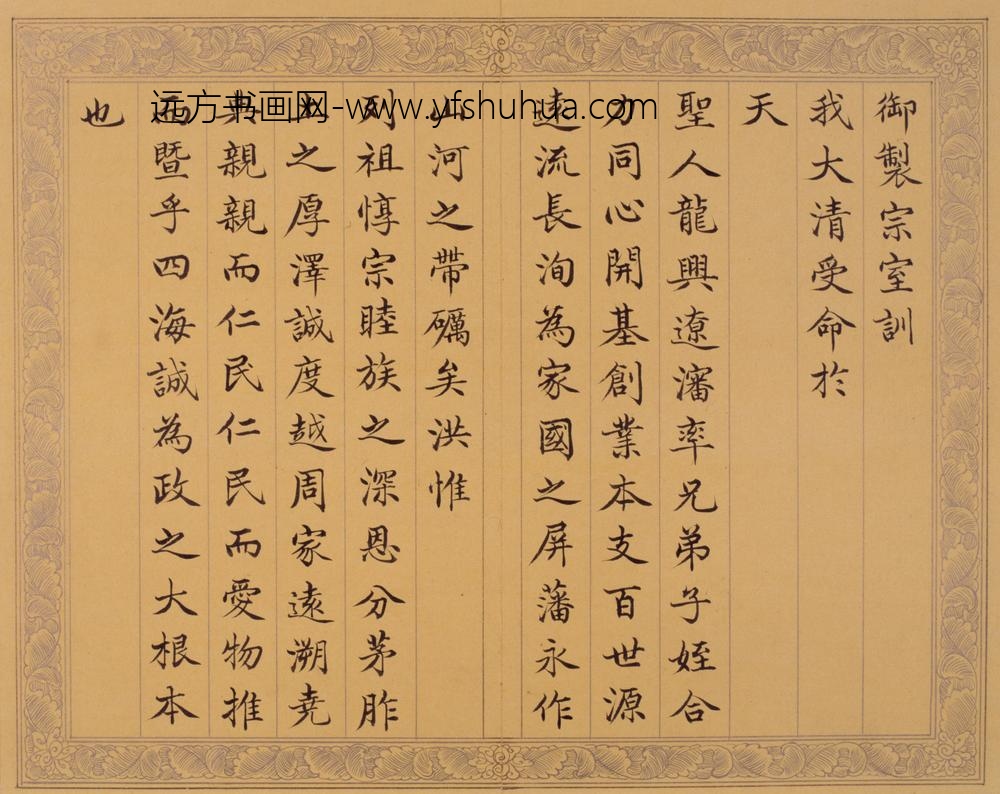 远方书画网-www.yfshuhua.com
御製宗室訓
我大清受命於
天
聖人龍興遼瀋率兄弟子姪合
力同心開基創業本支百世源
遠流長洵為家國之屏藩永作
山河之帶礪矣洪惟
列祖惇宗睦族之深恩分茅胙
土之厚澤誠度越周家遠溯堯
典親親而仁民仁民而愛物推
而暨乎四海誠為政之大根本
也